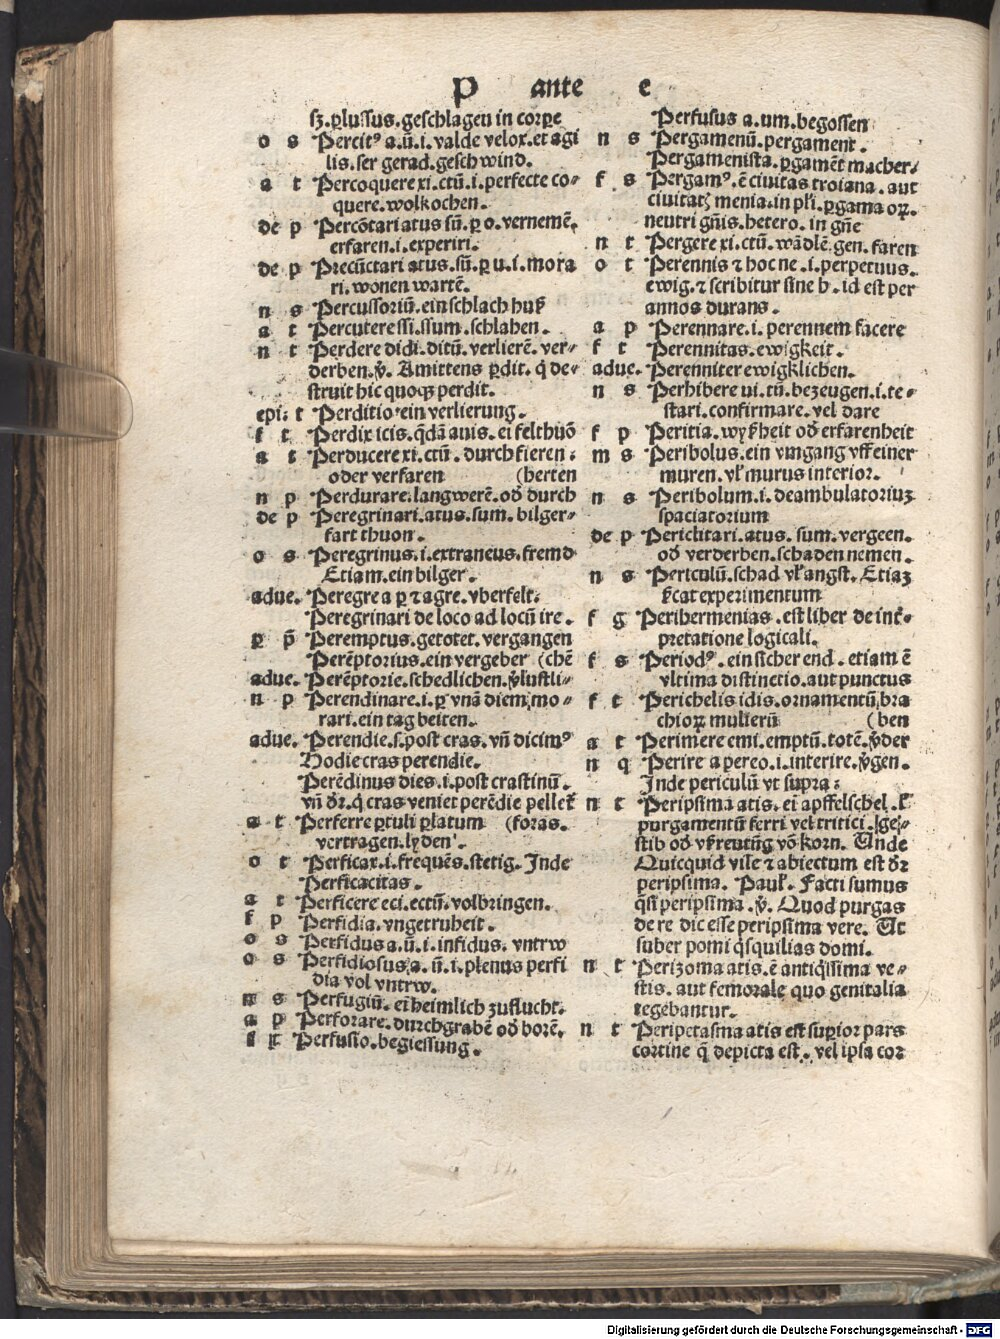 P ante e
sz. ꝑlussus. geschlagen in corpe
o s Percitꝰ a. ū. i. valde velox. et agi
lis. ser gerad. geschwind.
a t Percoquere xi. ctū. i. perfecte co-
quere. wolkochen.
de p Percōtari atus sū. ꝑ o. vernemē.
erfaren. i. experiri.
de p Precūctari atus. sū. ꝑ u. i. mora
ri. wonen wartē.
n s Percussoriū. ein schlach huß
a t Percutere ssi. ssum. schlahen.
n t Perdere didi. ditū. verlierē. ver-
derben. ꝟ. Amittens ꝑdit. q̇ de-
struit hic quoqꝫ perdit.
epi. t Perditio. ein verlierung.
f t Perdix icis. q̄dā auis. ei felthuō
a t Perducere xi. ctū. durch fieren.
oder verfaren (herten
n p Perdurare. langwerē. od̄ durch
de p Peregrinari. atus. sum. bilger-
fart thuon.
o s Peregrinus. i. extraneus. fremd
Etiam. ein bilger.
adue. Peregre a ꝑ ⁊ agre. vberfelt.
Peregrinari de loco ad locū ire.
ꝑ p̄ Peremptus. getotet. vergangen
Perēptorius. ein vergeber (chē
adue. Perēptorie. schedlichen. ꝟlustli-
n p Perendinare. i. ꝑ vnā diem mo-
rari. ein tag beiten.
adue. Perendie. s. post cras. vn̄ dicimꝰ
Hodie cras perendie.
Perēdinus dies. i. post crastinū.
vn̄ d̄r. q̄ cras veniet perēdie pellet̄
a t Perferre ꝑtuli ꝑlatum (foras.
vertragen. lyden.
o t Perficax. i. frequēs. stetig. Inde
Perficacitas.
a t Perficere eci. ectū. volbringen.
f p Perfidia. vngetruheit.
o s Perfidus a. ū. i. infidus. vntrw
o s Perfidiosus. a. ū. i. plenus perfi
dia vol vntrw.
n s Perfugiū. ei heimlich zuflucht.
a p Perforare. durchgrabē od̄ borē.
f t Perfusio. begiessung.
Perfusus a. um. begossen
n s Pergamenū. pergament.
Pergamenista. ꝑgamēt macher.
f s Pergamꝰ. ē ciuitas troiana. aut
ciuitatꝫ menia. in pl̄i. ꝑgama oꝝ.
neutri gn̄is. hetero. in gn̄e
n t Pergere xi. ctū. wādlē. gen. faren
o t Perennis ⁊ hoc ne. i. perpetuus.
ewig. ⁊ scribitur sine h. id est per
annos durans.
a p Perennare. i. perennem facere
f t Perennitas. ewigkeit.
adue. Perenniter ewigklichen.
n s Perhibere ui. tū. bezeugen. i. te-
stari. confirmare. vel dare
f p Peritia. wyßheit od̄ erfarenheit
m s Peribolus. ein vmgang vff einer
muren. vl̄ murus interior.
n s Peribolum. i. deambulatoriuꝫ
spaciatorium
de p Periclitari. atus. sum. vergeen.
od̄ verderben. schaden nemen.
n s Periculū. schad vl̄ angst. Etiaꝫ
ẜcat experimentum
f g Perihermenias. est liber de int̄-
pretatione logicali.
f s Periodꝰ. ein sicher end. etiam ē
vltima distinctio. aut punctus
f t Perichelis idis. ornamentū bra
chioꝝ mulierū (ben
a t Perimere emi. emptū. totē. ꝟder
n q Perire a pereo. i. interire. ꝟgen.
Inde periculū vt supra.
n t Peripsima atis. ei apffelschel. l̄
purgamentū ferri vel tritici. ge-
stib od̄ vßreutūg vō korn. Unde
Quicquid vile ⁊ abiectum est d̄r
peripsima. Paul̄. Facti sumus
q̄si peripsima. ꝟ. Quod purgas
de re dic esse peripsima vere. Ut
suber pomi q̄squilias domi.
n t Perizoma atis. ē antiq̇ssima ve-
stis. aut femorale quo genitalia
tegebantur.
n t Peripetasma atis est suꝑior pars
cortine q̄ depicta est. vel ipsa cor
Digitalisierung gefördert durch die Deutsche Forschungsgemeinschaft - DFG